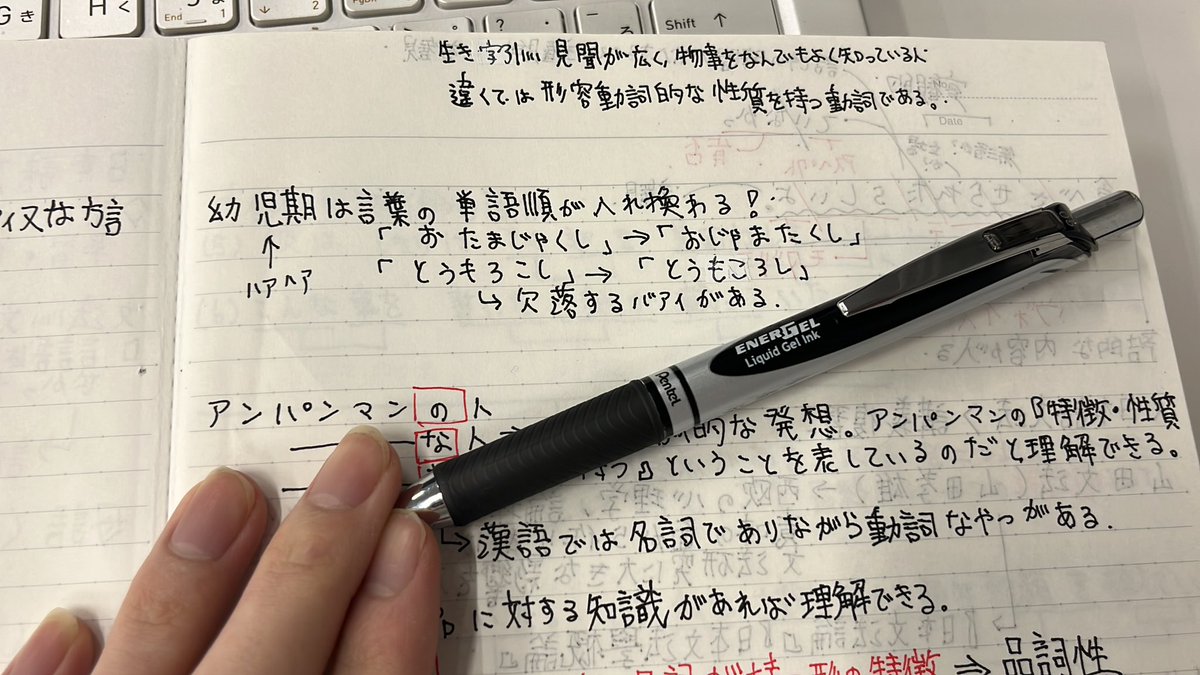 生き字引…見聞が広く、物事をなんでもよく知っている人
違くては形容動詞的な性質を持つ動詞である。
Date
ィ又な方言
幼児期は言葉の単語順が入れ換わる!
↑
ハアハア
「おたまじゃくし」→「おじゃまたくし」
「とうもろこし」→「とうもころし」
↳ 欠落するバアイがある.
アンパンマンの人
な人
的な発想。アンパンマンの『特徴・性質
』ということを表しているのだと理解できる。
↳ 漢語では名詞でありながら動詞なやつがある.
に対する知識があれば理解できる。
形の特徴 ⇒ 品詞性
ENERGEL
Liquid Gel Ink
Pentel
G き
H く
End
Shift ↑